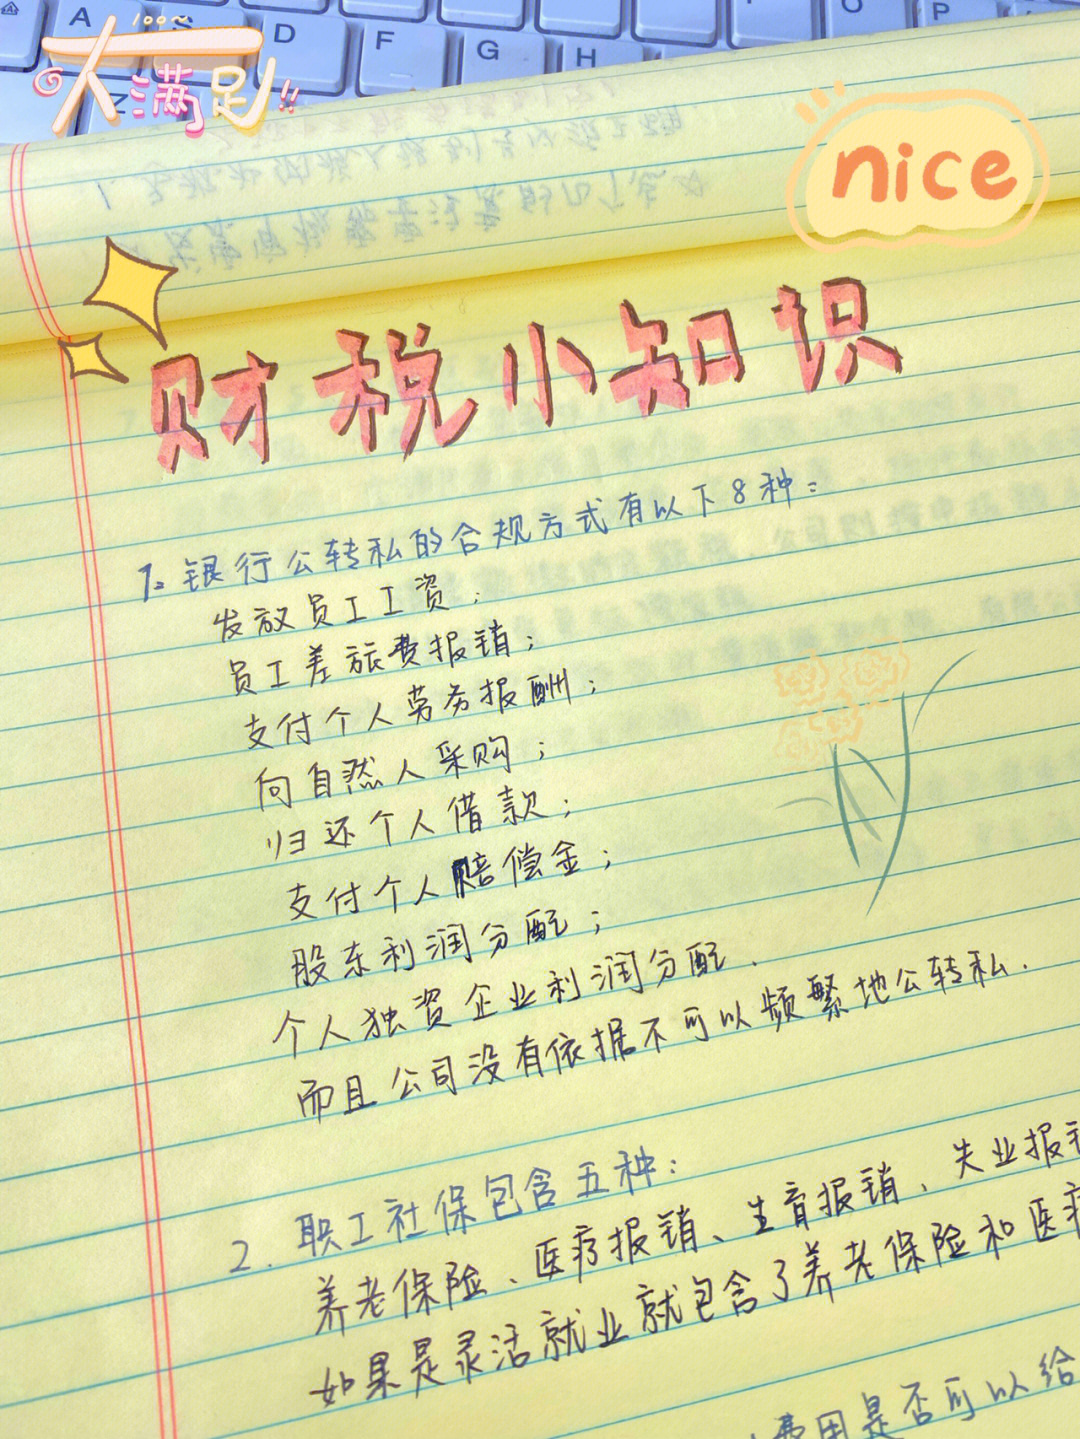 A S D F G H O P
Z
100~
大满足!!
nice
财税小知识
1、银行公转私的合规方式有以下8种:
发放员工工资;
员工差旅费报销;
支付个人劳务报酬;
向自然人采购;
归还个人借款;
支付个人赔偿金;
股东利润分配;
个人独资企业利润分配.
而且公司没有依据不可以频繁地公转私.
2. 职工社保包含五种:
养老保险、医疗报销、生育报销、失业报销
如果是灵活就业就包含了养老保险和医疗
费用是否可以给